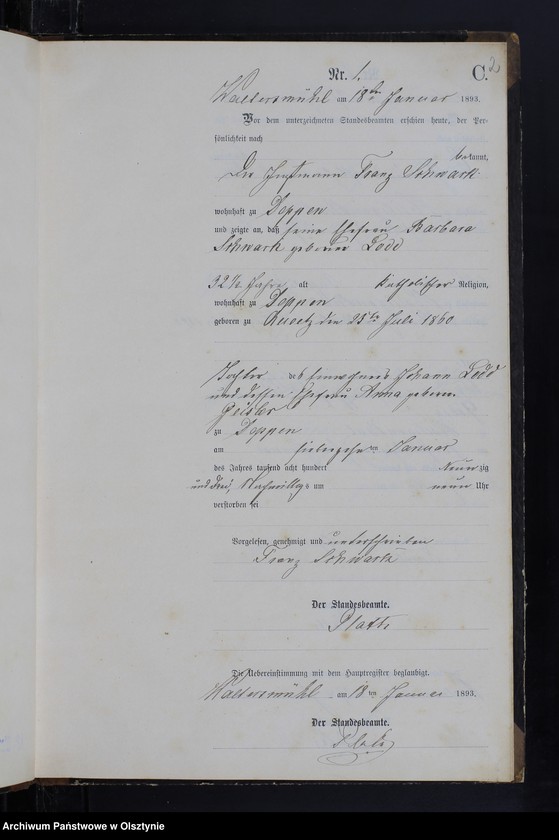 Nr. 1.
C. 2
Waltersmühl am 18ten Januar 1893.
Vor dem unterzeichneten Standesbeamten erschien heute, der Per-
sönlichkeit nach
bekannt,
Der Franz Schwark
wohnhaft zu Deppen
und zeigte an, daß seine Ehefrau Barbara
Schwark geborene Dodd
32½ Jahre alt katholischer Religion,
wohnhaft zu Deppen
geboren zu Queetz den 25ten Juli 1860
Tochter des Einwohners Johann Dodd
und dessen Ehefrau Anna geborene
Geisler
zu Deppen
am siebzehnten Januar
des Jahres tausend acht hundert Neunzig
und drei, Nachmittags um neun Uhr
verstorben sei
Vorgelesen, genehmigt und unterschrieben
Franz Schwark
Der Standesbeamte.
Die Uebereinstimmung mit dem Hauptregister beglaubigt.
Waltersmühl am 18ten Januar 1893.
Der Standesbeamte.
Archiwum Państwowe w Olsztynie